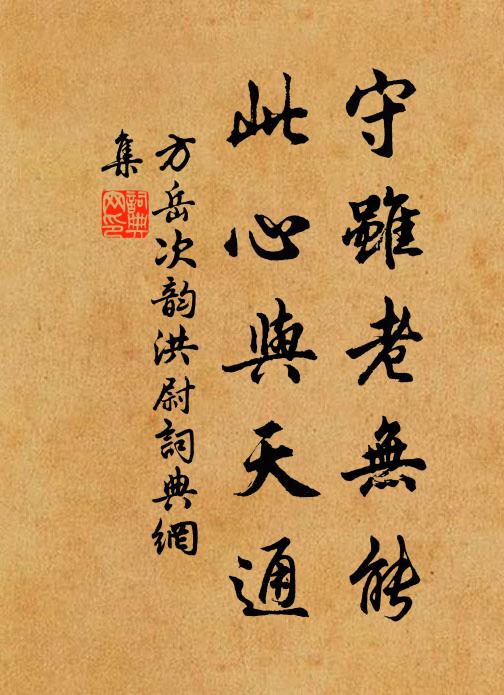 守雖老無能
此心與天通
方岳次韵洪尉詞典網
集
詞典
网印